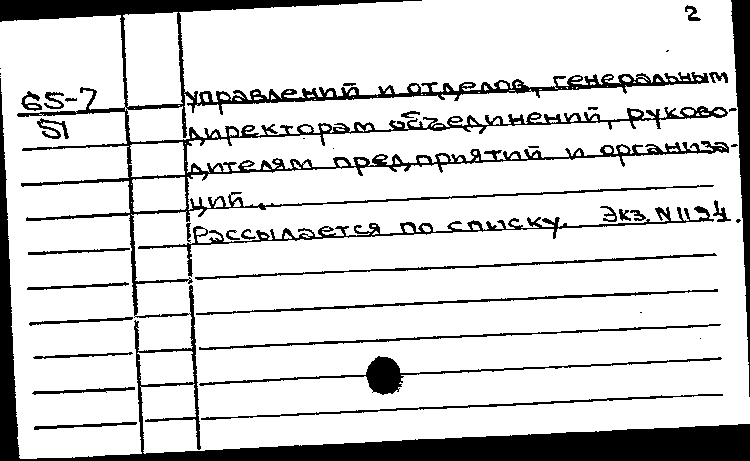 2
65-7 управлений и отделов, генеральным
51 директорам объединений, руково-
дителям предприятий и организа-
ций.
Рассылается по списку. Экз. N 1194.